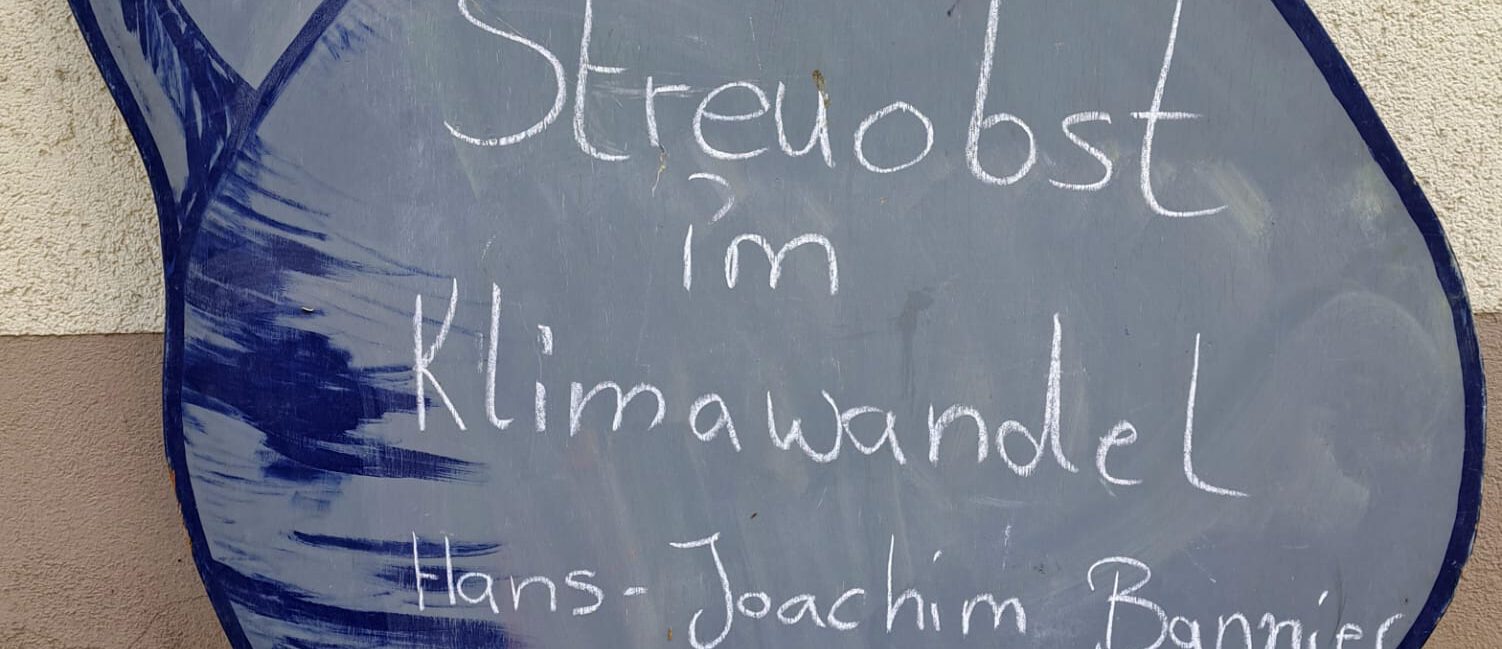 Streuobst
im
Klimawandel
Hans-Joachim Bannier